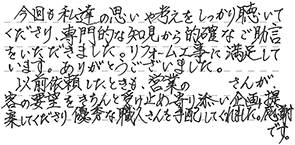 今回も私達の思いや考えをしっかり聴いて
くださり、専門的な知見から的確なご助言
をいただきました。リフォーム工事に満足して
います。ありがとうございました。
以前依頼したときも、営業の　　さんが
客の要望をきちんと受け止め寄り添い企画、提
案してくださり優秀な職人さんを手配してくれました。感謝
です。